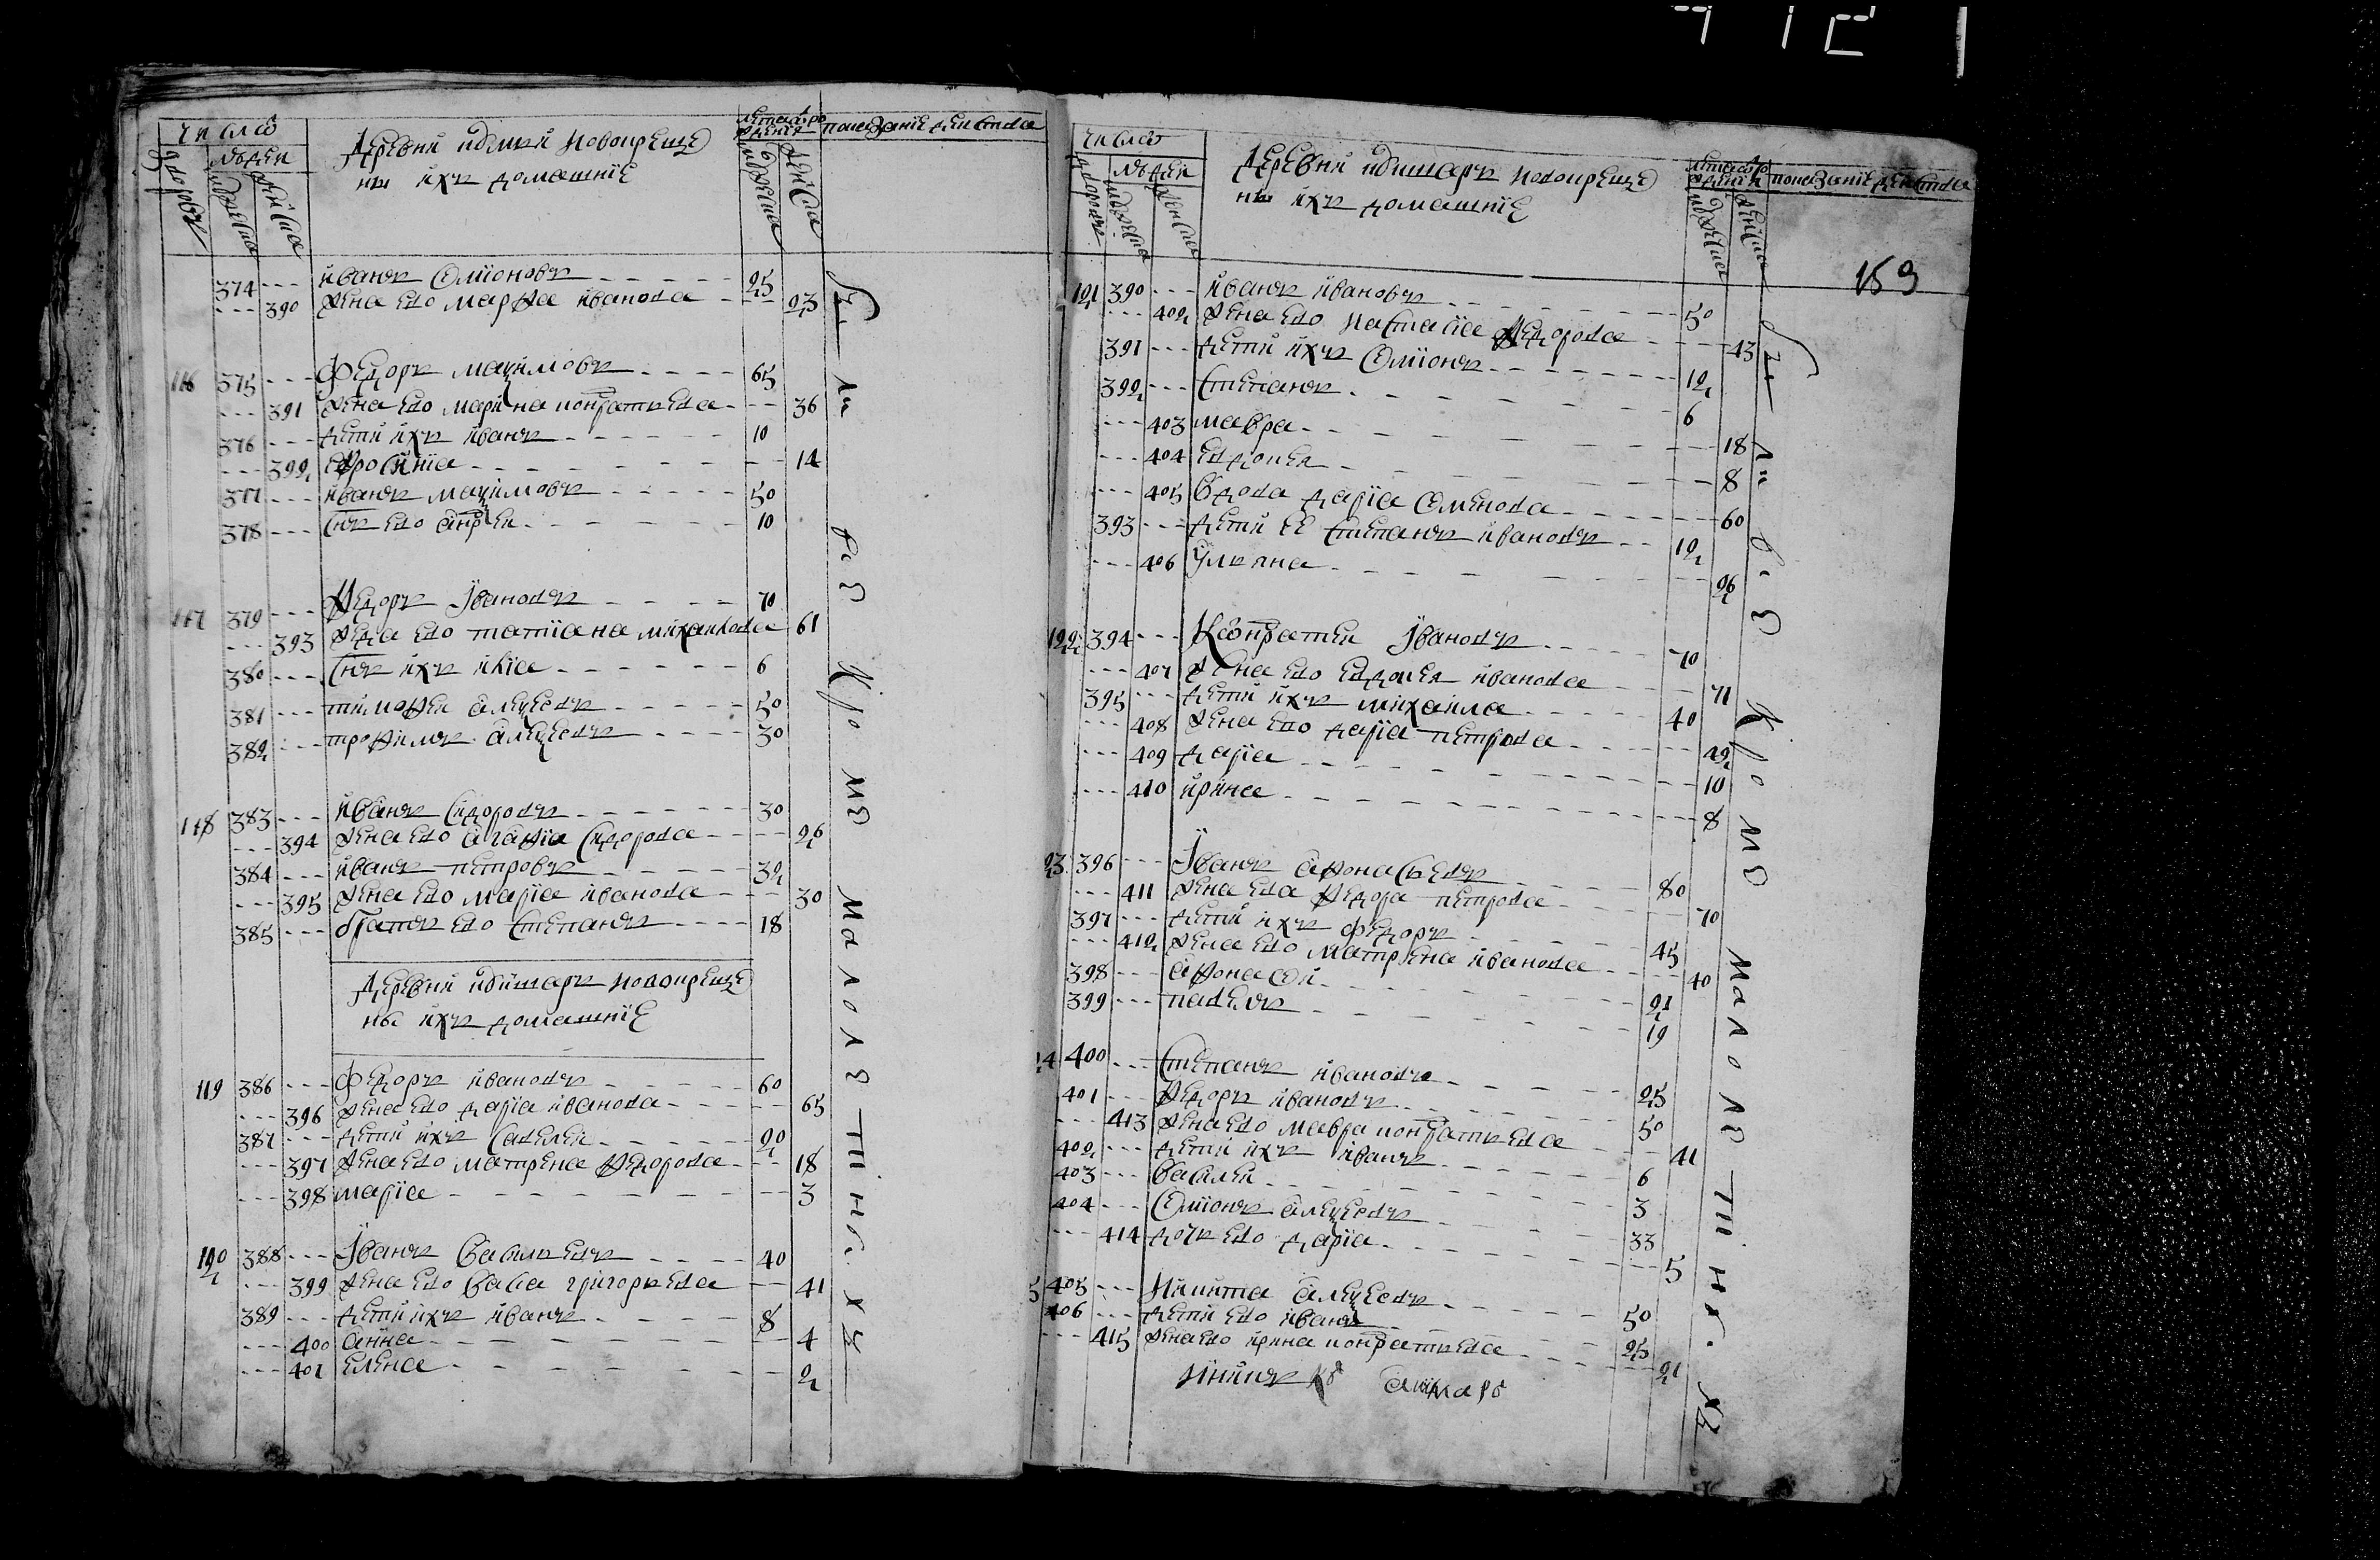 число
людей
дворовъ
мужеска
женска
Деревни новокреще
ны ихъ домашние
лета от ро
ждения
мужеска
женска
показание действа
374 --- иванъ Семионовъ 25
--- 390 жена ево марфа иванова 23
116 375 --- Федоръ максимовъ 65
--- 391 жена ево марина кондратьева 36
376 --- дети ихъ иванъ 10
--- 392 ефросиниа 14
377 --- иванъ максимовъ 50
378 --- снъ ево андрей 10
117 379 --- Федоръ Iвановъ 70
--- 393 жена ево татиана михаилова 61
380 --- снъ ихъ илiа 6
381 --- тимофей алексеевъ 50
382 --- трофимъ алексеевъ 30
118 383 --- иванъ Сидоровъ 30
--- 394 жена ево агафiа Сидорова 26
384 --- иванъ петровъ 32
--- 395 жена ево марiа иванова 30
385 --- братъ ево Степанъ 18
Деревни новокреще
ны ихъ домашнiе
119 386 --- Федоръ ивановъ 60
--- 396 жена ево дарiа иванова 65
387 --- дети ихъ Савелей 20
--- 397 жена ево матрена федорова 18
--- 398 марiа 3
120 388 --- Iванъ Васильевъ 40
--- 399 жена ево Васса григорьева 41
389 --- дети ихъ иванъ 8
--- 400 анна 4
--- 401 елена 2
все кроме малолетныхъ
число
людей
дворовъ
мужеска
женска
Деревни новокреще
ны ихъ домашнiе
лета от ро
ждения
мужеска
женска
показание действа
159
121 390 --- иванъ ивановъ 50
--- 402 жена ево настасiа федорова 43
391 --- дети ихъ Семионъ 12
392 --- Степанъ 6
--- 403 мавра 18
--- 404 евдокея 8
--- 405 вдова дарiа Семенова 60
393 --- дети ее Степанъ ивановъ 12
--- 406 ульяна 26
122 394 --- Кондратей Iвановъ 70
--- 407 жена ево евдокея иванова 71
395 --- дети ихъ михаила 40
--- 408 жена ево дарiа петрова 42
--- 409 дарiа 10
--- 410 ирина 8
23 396 --- Iванъ афонасьевъ 80
--- 411 жена ева федора петрова 70
397 --- дети ихъ Федоръ 45
--- 412 жена ево матрена иванова 40
398 --- афонасей 21
399 --- павелъ 19
24 400 --- Степанъ ивановъ 25
401 --- Федоръ ивановъ 50
--- 413 жена ево мавра кондратьева 41
402 --- дети ихъ иванъ 6
403 --- василей 3
404 --- Семионъ алексеевъ 33
--- 414 дочь ево дарiа 5
5 405 --- Никита алексеевъ 50
406 --- дети ево иванъ 25
--- 415 жена ево ирина кондратьева 21
все кроме малолетныхъ